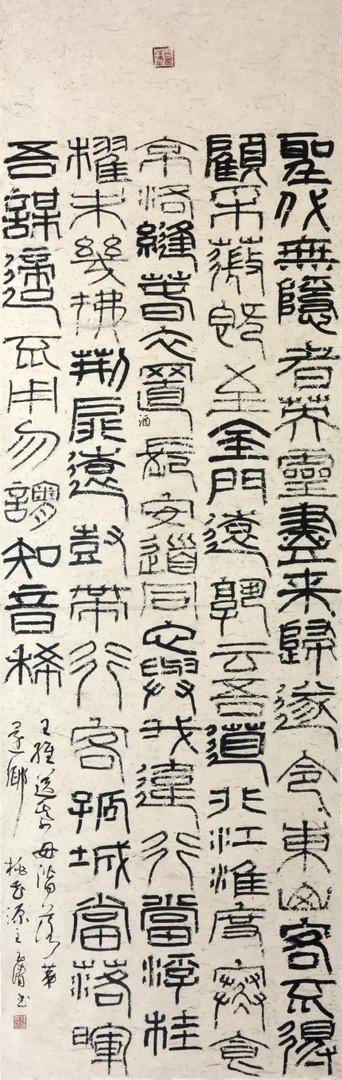 聖代無隱者英靈盡来歸遂令東山客不得
顧采薇既至金門遠孰云吾道非江淮度寒食
京洛縫春衣置酒長安道同心與我違行當浮桂
櫂未幾拂荆扉遠樹帶行客孤城當落暉
吾謀適不用勿謂知音稀
王維送綦毋潛落第
還鄉 桃花源主 书